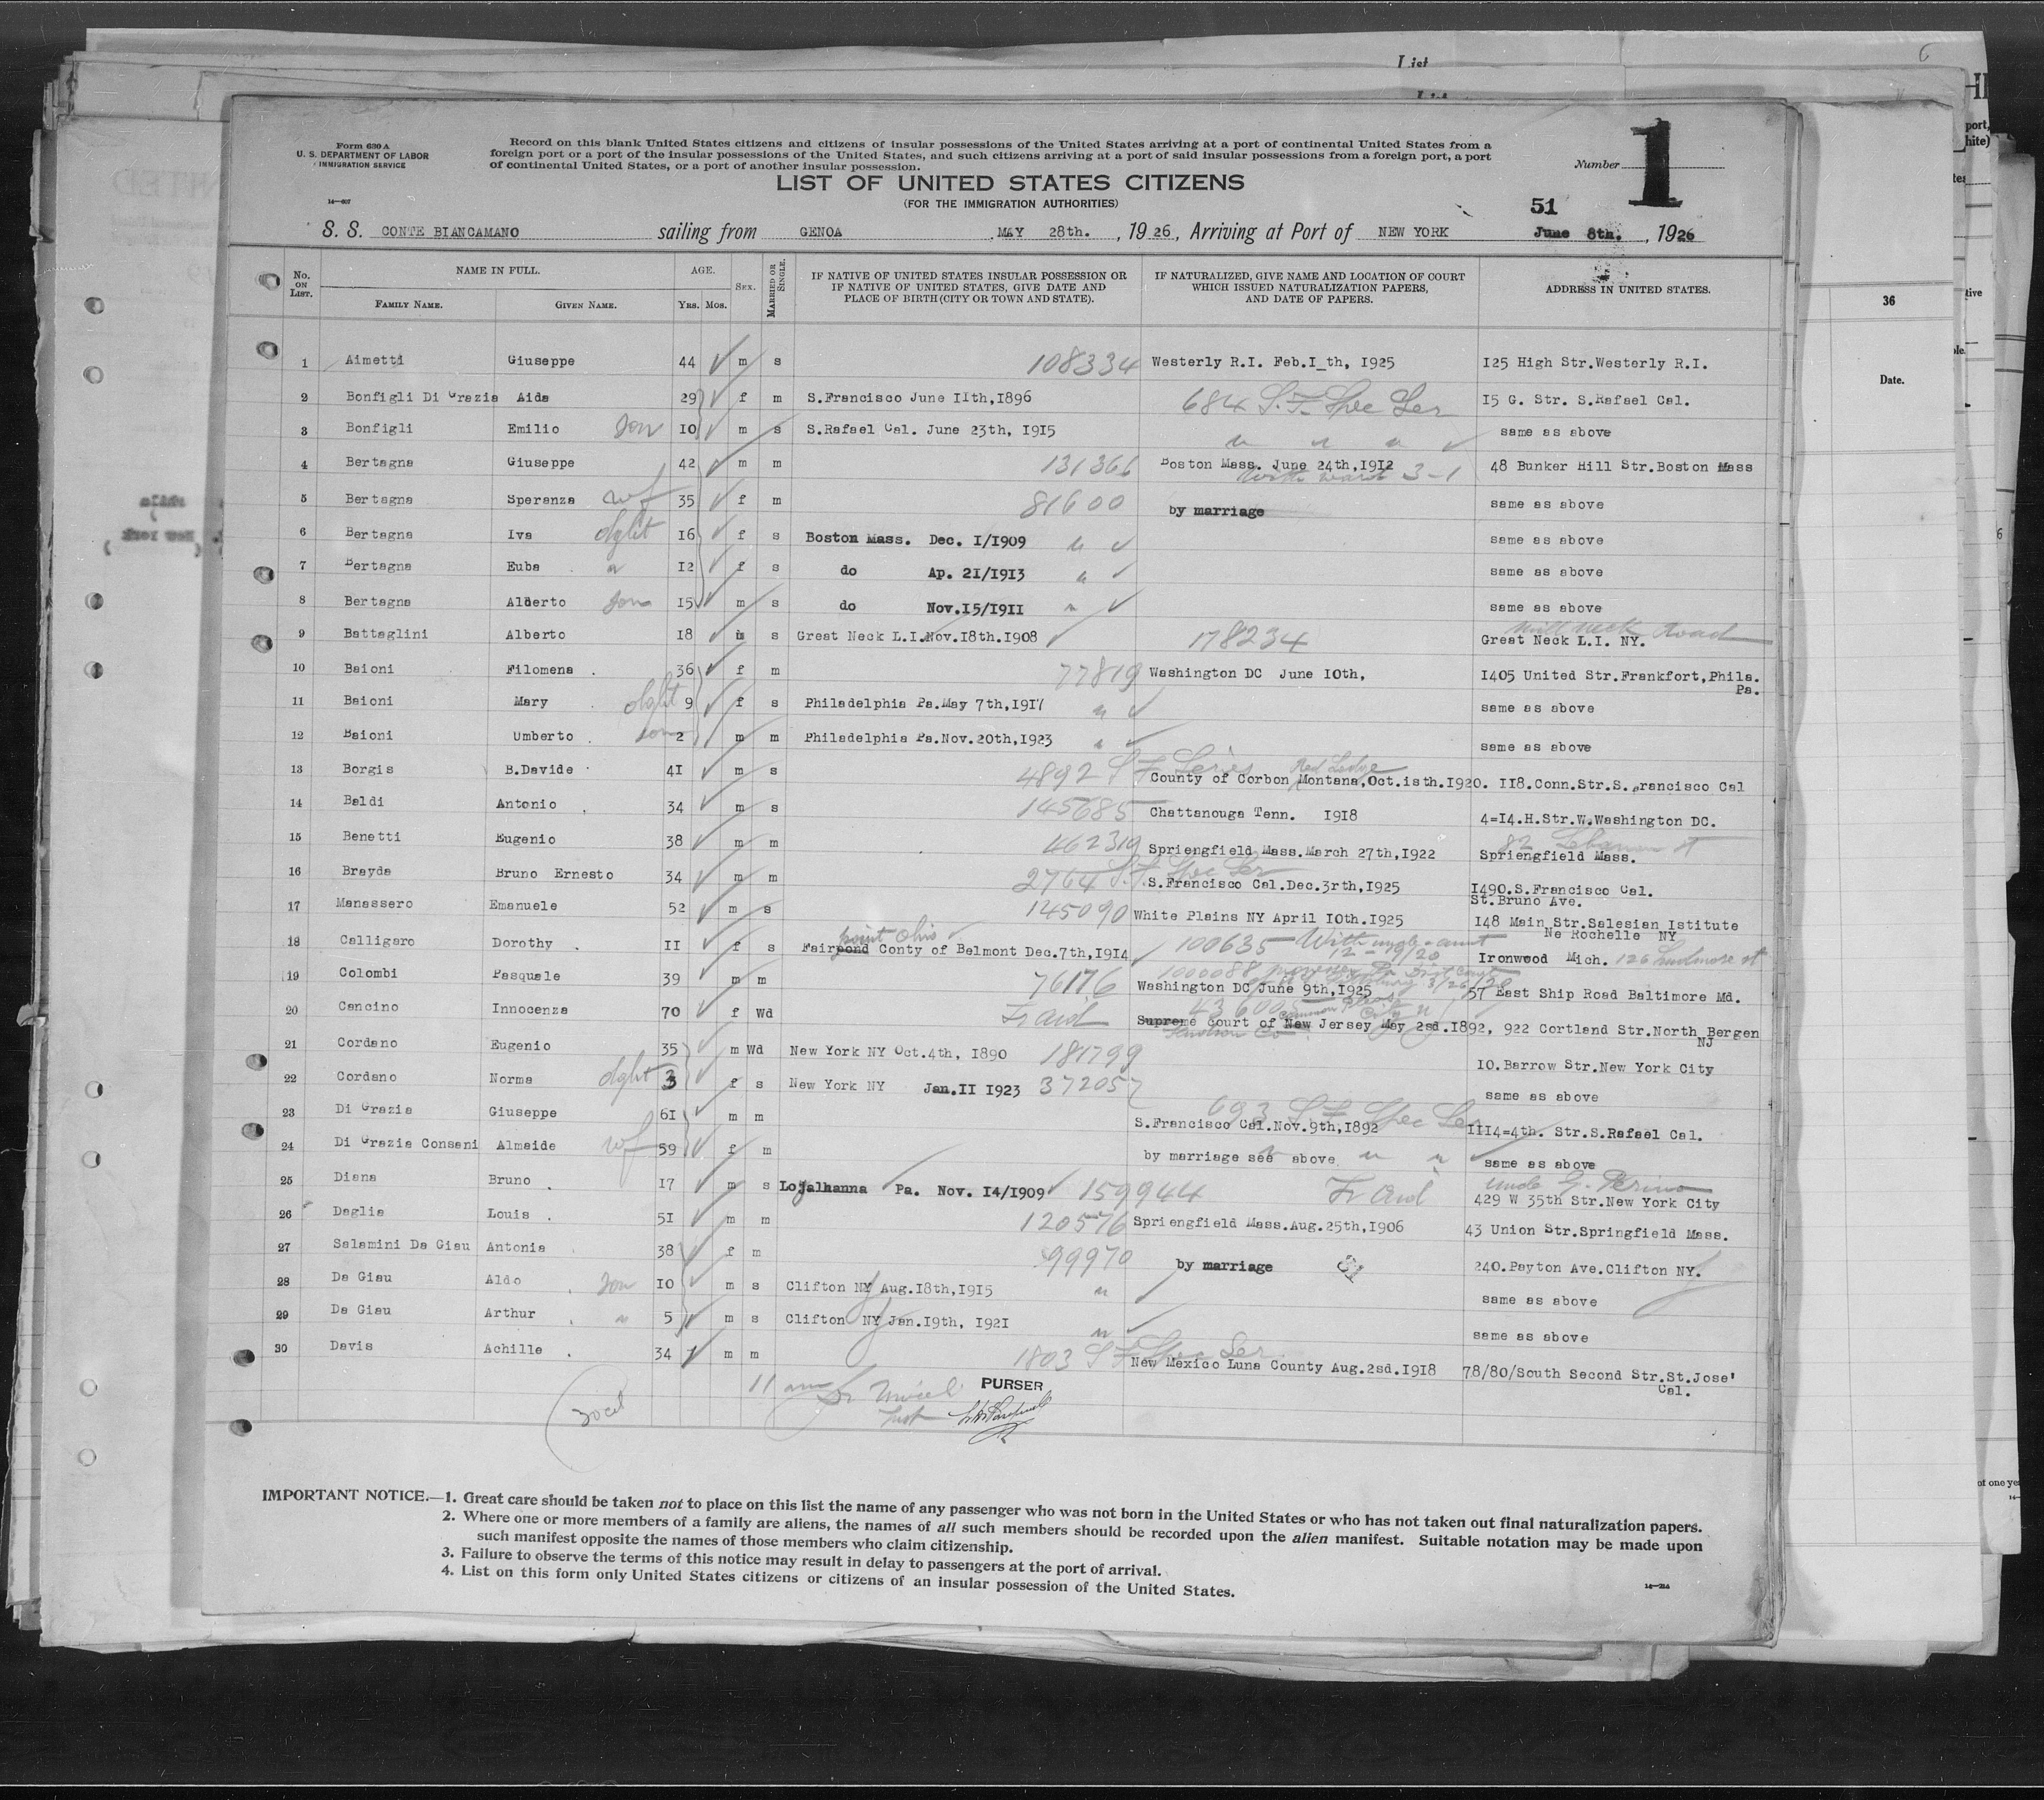 List
6
Form 630 A
U. S. DEPARTMENT OF LABOR
IMMIGRATION SERVICE
14—607
Record on this blank United States citizens and citizens of insular possessions of the United States arriving at a port of continental United States from a
foreign port or a port of the insular possessions of the United States, and such citizens arriving at a port of said insular possessions from a foreign port, a port
of continental United States, or a port of another insular possession.
Number 1
LIST OF UNITED STATES CITIZENS
(FOR THE IMMIGRATION AUTHORITIES)
51
S. S. CONTE BIANCAMANO sailing from GENOA MAY 28th. , 1926, Arriving at Port of NEW YORK June 8th. , 1926
No. ON LIST. NAME IN FULL. FAMILY NAME. GIVEN NAME. AGE. YRS. MOS. SEX. MARRIED OR SINGLE. IF NATIVE OF UNITED STATES INSULAR POSSESSION OR IF NATIVE OF UNITED STATES, GIVE DATE AND PLACE OF BIRTH (CITY OR TOWN AND STATE). IF NATURALIZED, GIVE NAME AND LOCATION OF COURT WHICH ISSUED NATURALIZATION PAPERS, AND DATE OF PAPERS. ADDRESS IN UNITED STATES.
36
Date.
1 Aimetti Giuseppe 44 m s 108334 Westerly R.I. Feb.I_th, I925 I25 High Str.Westerly R.I.
2 Bonfigli Di Grazia Aida 29 f m S.Francisco June IIth,I896 684 S.F. Spec Ser I5 G. Str. S.Rafael Cal.
3 Bonfigli Emilio Son I0 m s S.Rafael Cal. June 23th, I9I5 " " " same as above
4 Bertagna Giuseppe 42 m m 131366 Boston Mass. June 24th,I9I2 48 Bunker Hill Str.Boston Mass
5 Bertagna Speranza wf 35 f m 81600 by marriage same as above
6 Bertagna Iva dght I6 f s Boston Mass. Dec. I/I909 " same as above
7 Bertagna Euba " I2 f s do Ap. 2I/I9I3 " same as above
8 Bertagna Alderto Son I5 m s do Nov.I5/I9II " same as above
9 Battaglini Alberto I8 s Great Neck L.I.Nov.I8th.I908 178234 Mill Neck Road
Great Neck L.I. NY.
10 Baioni Filomena . 36 f m 77819 Washington DC June I0th, I405 United Str.Frankfort,Phila.
Pa.
11 Baioni Mary dght 9 f s Philadelphia Pa.May 7th,I9I7 " same as above
12 Baioni Umberto . son 2 m m Philadelphia Pa.Nov.20th,I923 " same as above
13 Borgis B.Davide 4I m s 4892 S F Series Red Lodge
County of Corbon Montana,Oct.Isth.I920. II8.Conn.Str.S.Francisco Cal
14 Baldi Antonio . 34 m s 145685 Chattanouga Tenn. I9I8 4=I4.H.Str.W.Washington DC.
15 Benetti Eugenio 38 m m 462319 Spriengfield Mass.March 27th,I922 82 Lebanon st
Spriengfield Mass.
16 Brayda Bruno Ernesto 34 m m 2764 S.F. Spec Ser
S.Francisco Cal.Dec.3rth,I925 I490.S.Francisco Cal.
St.Bruno Ave.
17 Manassero Emanuele 52 m s 145090 White Plains NY April I0th.I925 I48 Main Str.Salesian Istitute
Ne Rochelle NY
18 Calligaro Dorothy . II f s point Ohio
Fairpond Conty of Belmont Dec.7th,I9I4 100635 With uncle + aunt
12-19/20
Ironwood Mich.
19 Colombi Pasquale 39 m m 76176 Washington DC June 9th,I925 57 East Ship Road Baltimore Md.
20 Cancino Innocenza 70 f Wd 43600
Supreme court of New Jersey May 2sd.I892, 922 Cortland Str.North Bergen
NJ
21 Cordano Eugenio 35 m Wd New York NY Oct.4th, I890 181799 I0.Barrow Str.New York City
22 Cordano Norma dght 3 f s New York NY Jan.II I923 372057 same as above
23 Di Grazia Giuseppe 6I m m 693 S F Spec Ser
S.Francisco Cal.Nov.9th,I892 III4=4th. Str.S.Rafael Cal.
24 Di Grazia Consani Almaide wf 59 f m by marriage see above " " same as above
25 Diana Bruno . I7 m s Lojalhanna Pa. Nov. I4/I909 159944 uncle G. Perino
429 W 35th Str.New York City
26 Daglia Louis . 5I m m 120576 Spriengfield Mass.Aug.25th,I906 43 Union Str.Springfield Mass.
27 Salamini Da Giau Antonia 38 f m 99970 by marriage 240.Payton Ave.Clifton NY.
28 Da Giau Aldo . Son I0 m s Clifton NY Aug.I8th,I9I5 " same as above
29 Da Giau Arthur . " 5 m s Clifton NY Jan.I9th, I92I " same as above
30 Davis Achille . 34 m m 1803 S F Spec Ser
New Mexico Luna County Aug.2sd.I9I8 78/80/South Second Str.St.Jose'
Cal.
11 am
PURSER
30 cit
IMPORTANT NOTICE.—1. Great care should be taken not to place on this list the name of any passenger who was not born in the United States or who has not taken out final naturalization papers.
2. Where one or more members of a family are aliens, the names of all such members should be recorded upon the alien manifest. Suitable notation may be made upon
such manifest opposite the names of those members who claim citizenship.
3. Failure to observe the terms of this notice may result in delay to passengers at the port of arrival.
4. List on this form only United States citizens or citizens of an insular possession of the United States.